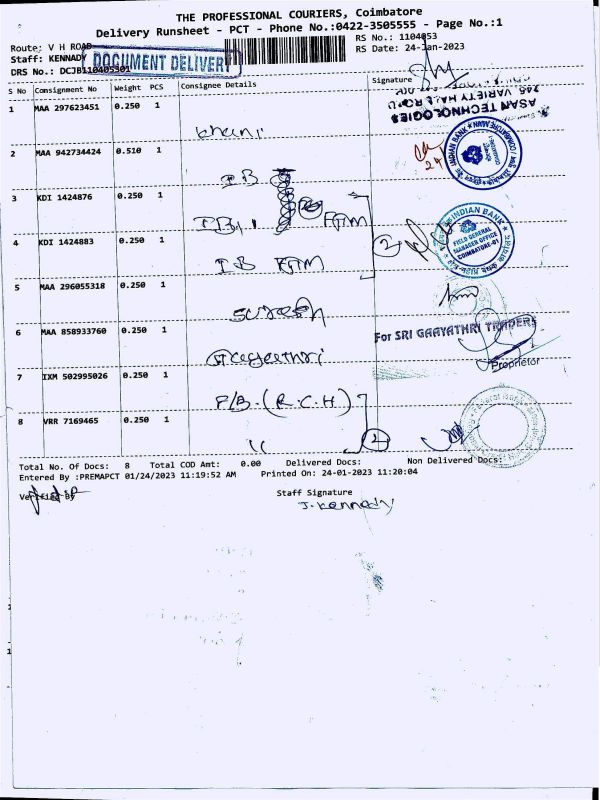 THE PROFESSIONAL COURIERS, Coimbatore
Delivery Runsheet - PCT - Phone No.:0422-3505555 - Page No.:1
Route: V H ROAD
RS No.: 1104053
Staff: KENNADY
RS Date: 24-Jan-2023
DOCUMENT DELIVERY
DRS No.: DCJB110405301
S No Consignment No Weight PCS Consignee Details Signature
ASAN TECHNOLOGIES
246, VARIETY HALL ROAD
1 MAA 297623451 0.250 1
INDIAN BANK
24
2 MAA 942734424 0.510 1
IB
3 KDI 1424876 0.250 1
INDIAN BANK
FIELD GENERAL
MANAGER OFFICE
COIMBATORE-01
4 KDI 1424883 0.250 1
2
IB
5 MAA 296055318 0.250 1
Suresh
6 MAA 858933760 0.250 1
For SRI GAAYATHRI TRADERS
Proprietor
Gayeethri
7 IXM 502995026 0.250 1
F/B (R.C.H)
8 VRR 7169465 0.250 1
Federal Bank
"
2
Total No. Of Docs: 8 Total COD Amt: 0.00 Delivered Docs: Non Delivered Docs:
Entered By :PREMAPCT 01/24/2023 11:19:52 AM Printed On: 24-01-2023 11:20:04
Verified By
Staff Signature
J. Kennady